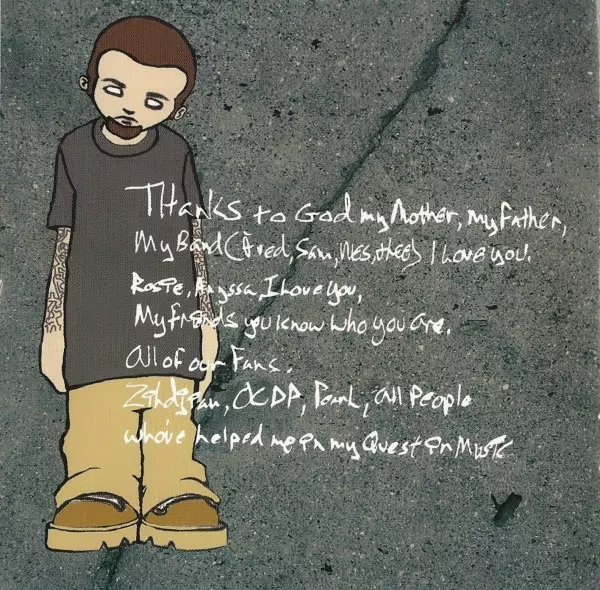 Thanks to God my Mother, my Father,
My Band (Fred, Sam, Wes, Lethal) I Love you.
Rosie, Anyssa, I Love you,
My friends you know who you are.
All of our Fans.
Zildjian, OCDP, Pearl, All People
who've helped me in my Quest in Music